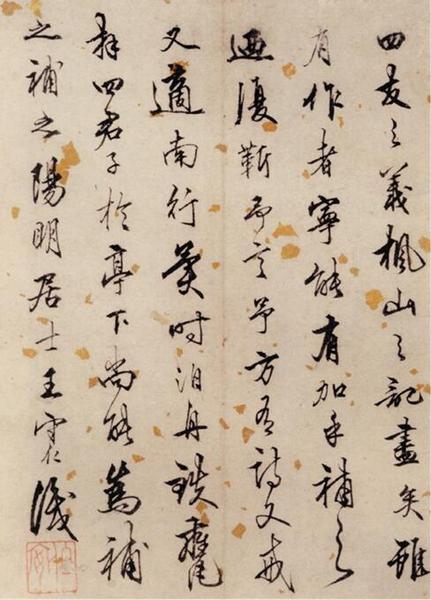 四友之義楓山之記盡矣雖
有作者寧能有加乎補之
廼復靳予言予方有詩文戒
又適南行異時泊舟鐵甕
拜四君子於亭下尚能為補
之補之陽明居士王守仁識